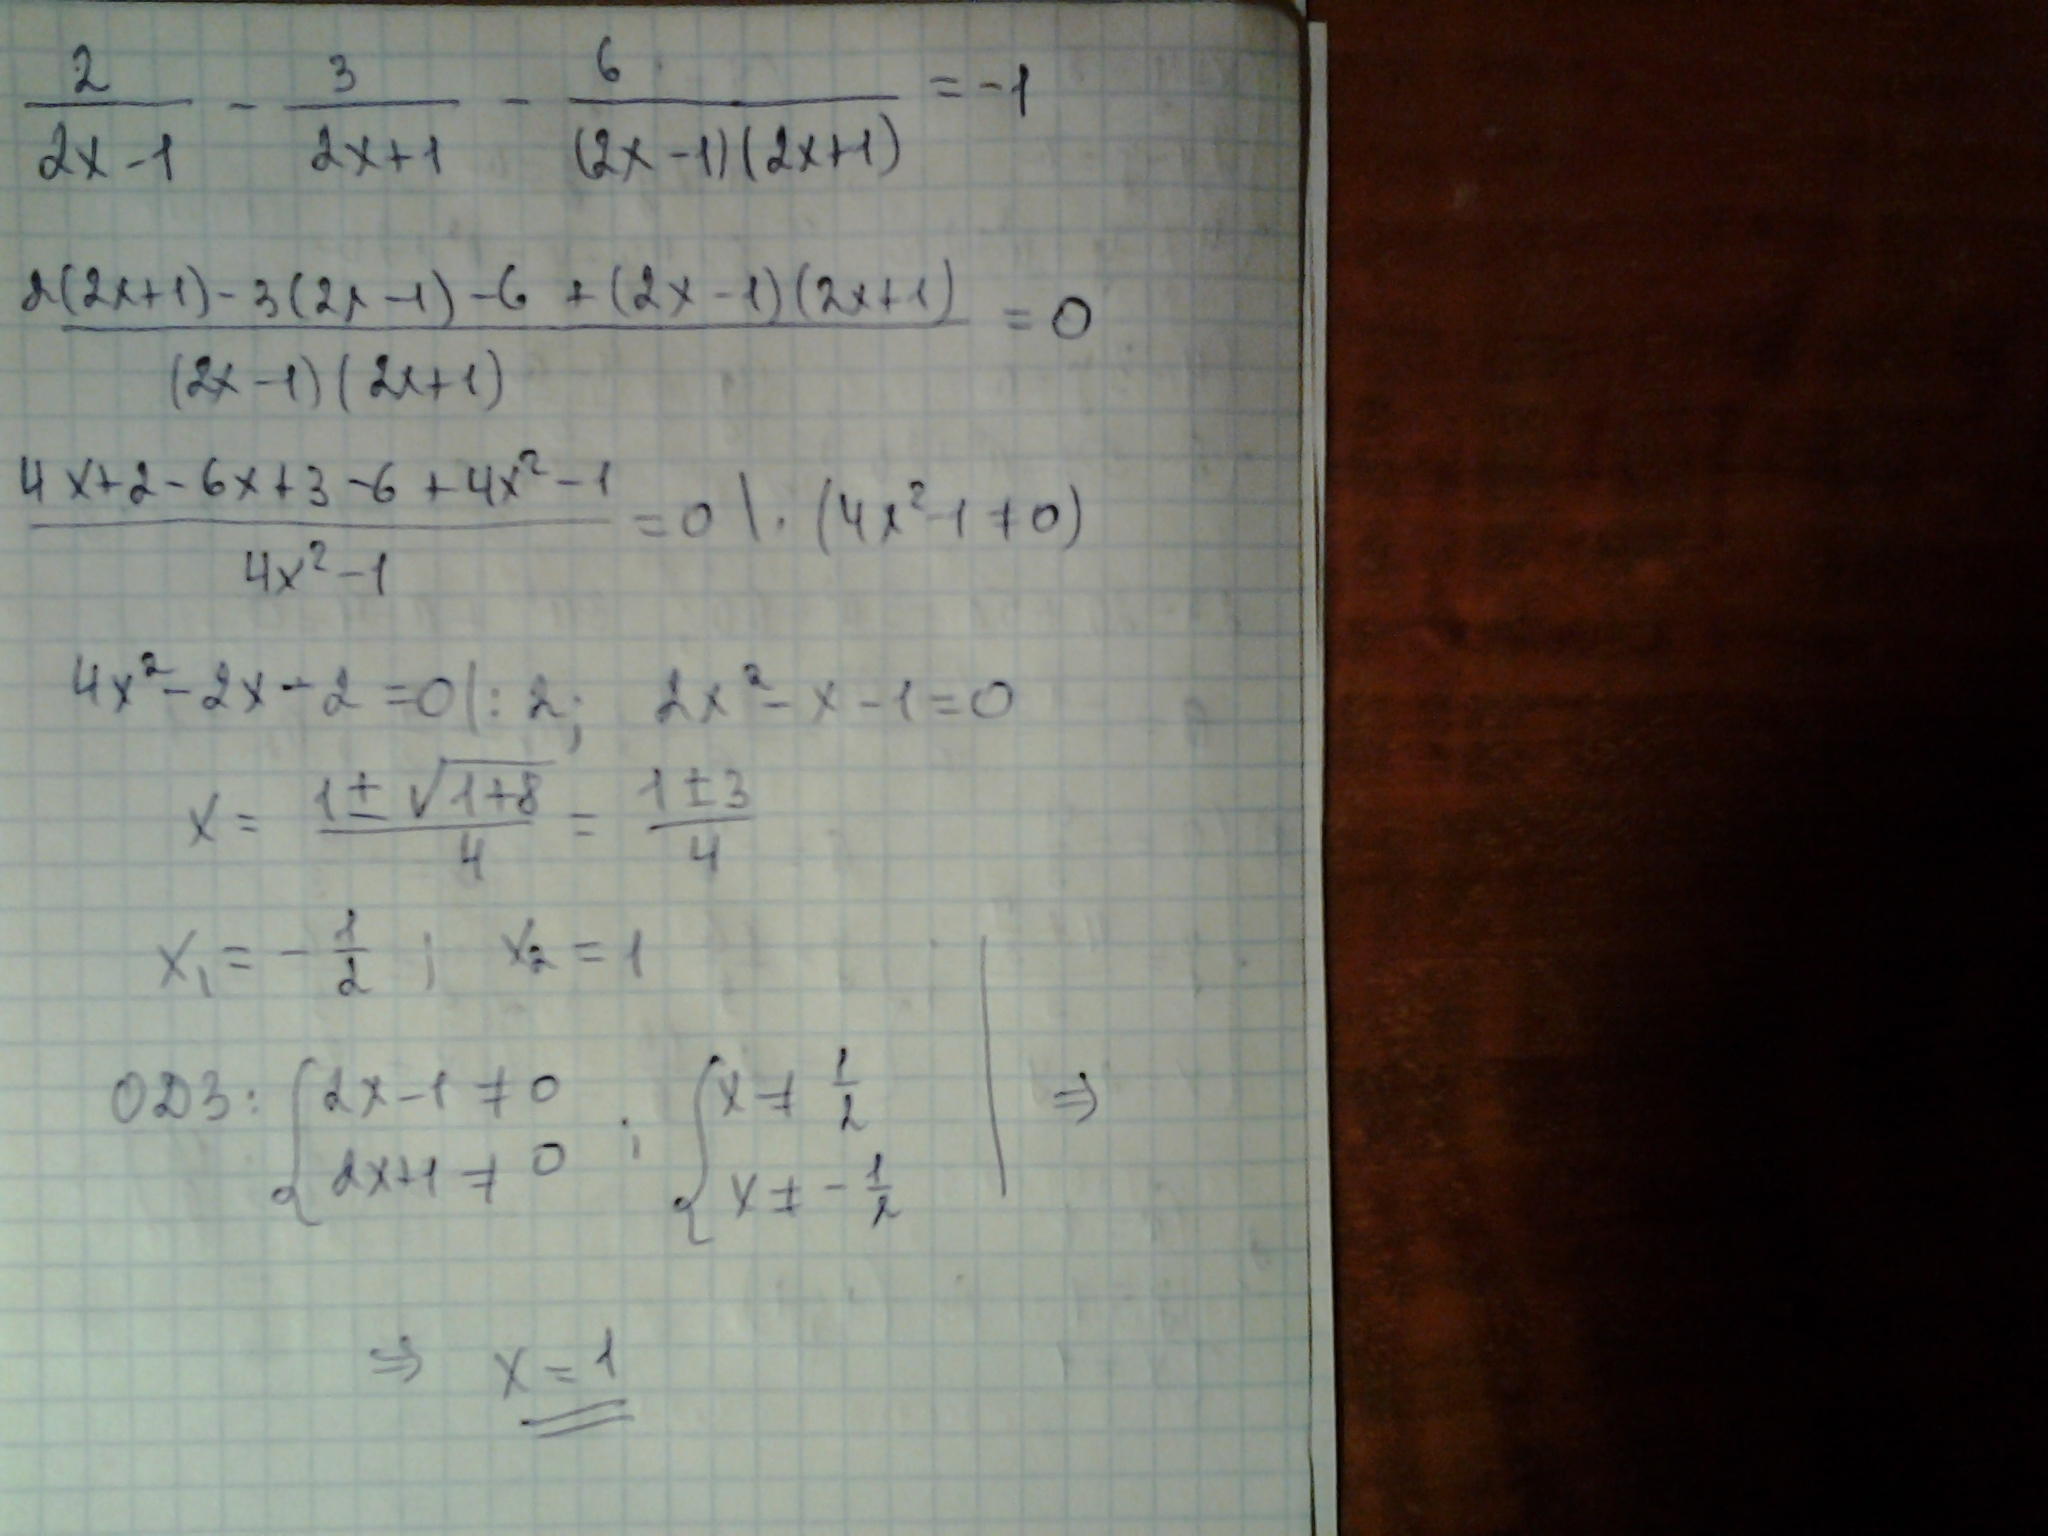 2/(2x-1) - 3/(2x+1) - 6/((2x-1)(2x+1)) = -1
(2(2x+1)-3(2x-1)-6+(2x-1)(2x+1))/((2x-1)(2x+1)) = 0
(4x+2-6x+3-6+4x²-1)/(4x²-1) = 0 |·(4x²-1≠0)
4x²-2x-2=0|:2; 2x²-x-1=0
x = (1±√(1+8))/4 = (1±3)/4
x₁ = -1/2; x₂ = 1
ОДЗ: {2x-1≠0; 2x+1≠0; {x≠1/2; x≠-1/2 | ⇒
⇒ x=1